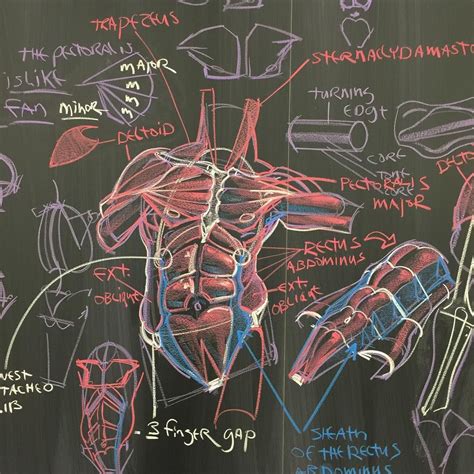 TRAPEZEUS
THE PECTORAL IS
IS LIKE
FAN
MAJOR
m
m
m
MINOR
DELTOID
STERNALLYDAMASTO
TURNING
EDGE
CORE
TONE
PECTORLUS
MAJOR
DELTO
RECTUS
ABDOMINUS
EXT.
OBLIQUE
EXT.
OBLIQUE
WEST
TTACHED
IB
- 3 finger GAP
SHEATH
OF THE RECTUS
ABDOMINUS